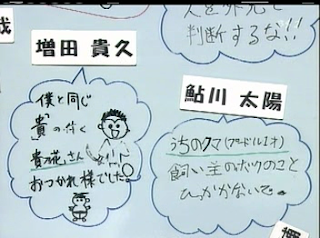 人を外見で
判断するな!!
増田 貴久
僕と同じ
貴の付く
貴乃花さん
おつかれ様でした。
鮎川 太陽
うちのクマ(プードル1才)
飼い主のボクのこと
ひっかかないで。